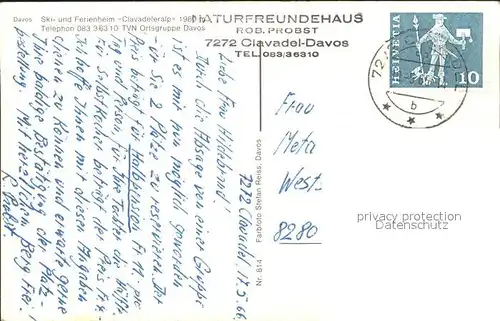 Davos Ski- und Ferienheim «Clavadeleralp» 196
Telephon 083 3 63 10 TVN Ortsgruppe Davos
NATURFREUNDEHAUS
ROB. PROBST
7272 Clavadel-Davos
TEL. 083/36310
HELVETIA
10
b
7272 Clavadel, 17.5.66
Liebe Frau Hildebrand!
Durch die Absage von einer Gruppe
ist es mir nun möglich geworden
für Sie 2 Plätze zu reservieren. Der
Preis beträgt für Halbpension Fr. 11.
und Person, für Ihre Tochter die
so Selbstkocher beträgt der Preis Fr. 4.-
Ich hoffe Ihnen mit diesen Angaben
dienen zu können und erwarte gerne
Ihre baldige Bestätigung der Platz-
bestellung. Mit herzlichem Berg Frei!
R. Probst.
Nr. 814 Farbfoto Stefan Reiss, Davos
Frau
Meta
West
8280
privacy protection
Datenschutz